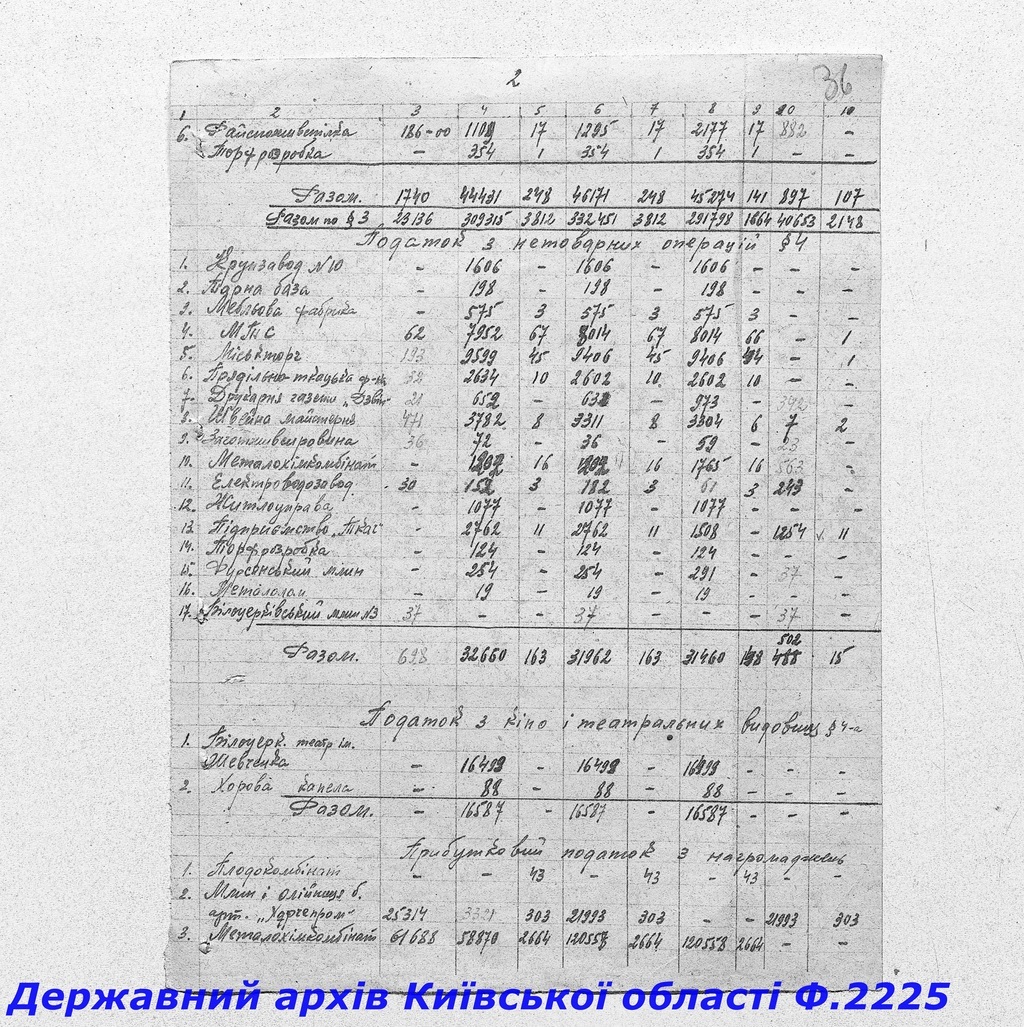 2
36
1 2 3 4 5 6 7 8 9 10 10
6. Райспоживспілка 186-00 1109 17 1295 17 2177 17 882 -
Торфрозробка - 354 1 354 1 354 1 - -
Разом. 1740 44431 248 46171 248 45274 141 897 107
Разом по § 3 23136 309315 3812 332451 3812 291798 1664 40653 2148
Податок з нетоварних операцій § 4
1. Крупзавод N10 - 1606 - 1606 - 1606 - - -
2. Тарна база - 198 - 198 - 198 - - -
3. Мебльова фабрика - 575 3 575 3 575 3 - -
4. МТС 62 7952 67 8014 67 8014 66 - 1
5. Міськторг 193 9599 45 9406 45 9406 44 - 1
6. Прядільно-ткацька ф-ка 32 2634 10 2602 10 2602 10 - -
7. Друкарня газети „ 21 652 - 631 - 973 - 342 -
8. Швейна майстерня 471 3782 8 3311 8 3304 6 7 2
9. Заготживсировина 36 72 - 36 - 59 - 23 -
10. Металохімкомбінат - 1202 16 1202 16 1765 16 563 -
11. Електроводозовод 30 152 3 182 3 61 3 243 -
12. Житлоуправа - 1077 - 1077 - 1077 - - -
13. Підприємство „Ткач" - 2762 11 2762 11 1508 - 1254 11
14. Торфрозробка - 124 - 124 - 124 - - -
15. Фурсенський млин - 254 - 254 - 291 - 37 -
16. Металолом - 19 - 19 - 19 - - -
17. Білоцерківський млин N3 37 - - 37 - - - 37 -
502
Разом. 698 32660 163 31962 163 31460 148 488 15
Податок з кіно і театральних видовищ § 4-а
1. Білоцерк. театр ім.
Шевченка - 16499 - 16499 - 16499 - - -
2. Хорова капела - 88 - 88 - 88 - - -
Разом. - 16587 - 16587 - 16587 - - -
Прибутковий податок з нагромаджень
1. Плодокомбінат - - 43 - 43 - 43 - -
2. Млин і олійниця б.
арт. „Харчепром" 25314 3321 303 21993 303 - - 21993 303
3. Металохімкомбінат 61688 58870 2664 120558 2664 120558 2664 - -
Державний архів Київської області Ф.2225